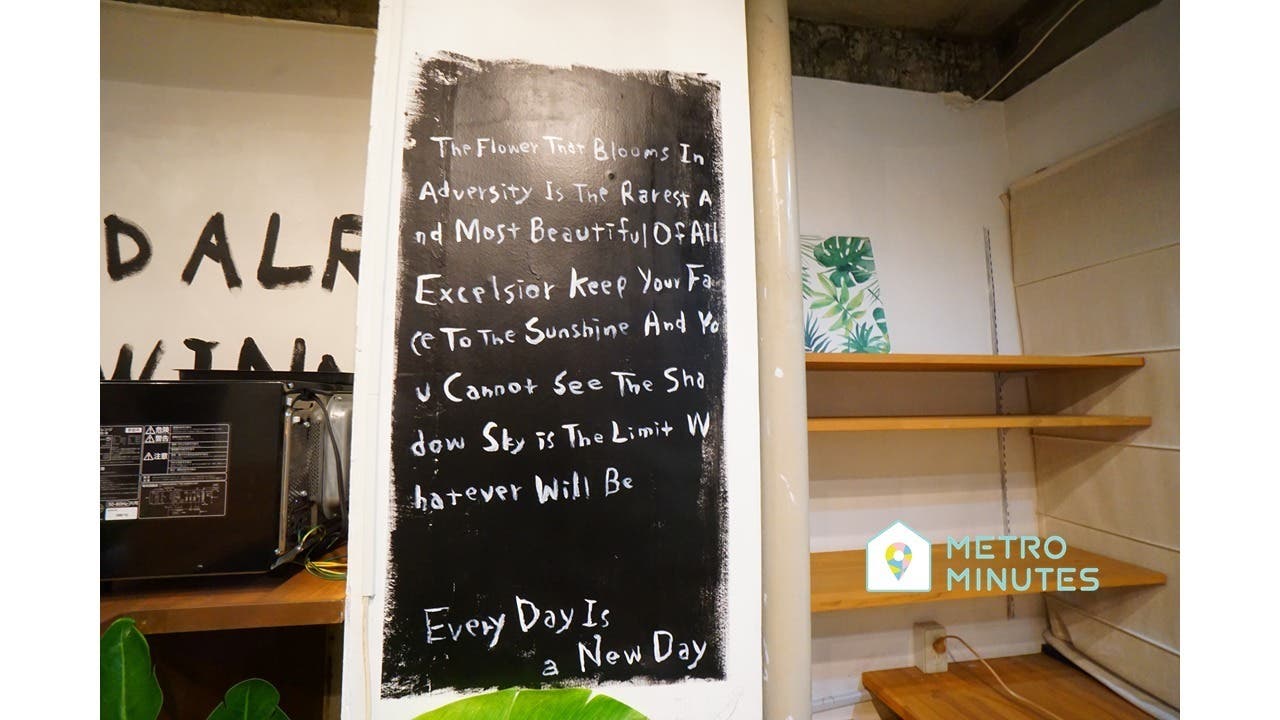 The Flower That Blooms In
Adversity Is The Rarest A
nd Most Beautiful Of All.
Excelsior Keep Your Fa
ce To The Sunshine And Yo
u Cannot See The Sha
dow Sky is The Limit W
hatever Will Be
Every Day Is
a New Day
D ALR
WIN
危険
警告
注意
METRO
MINUTES